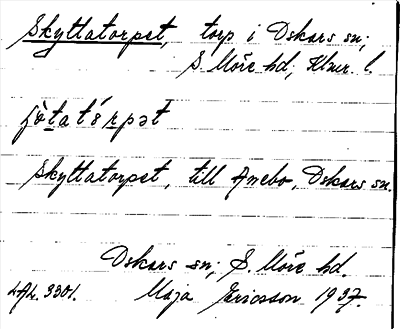 Skyttatorpet, torp i Oskars sn;
S. Möre hd, Klmr. l.
Skyttatorpet, till Anebo, Oskars sn.
Oskars sn; S. Möre hd.
Maja Ericsson 1937.